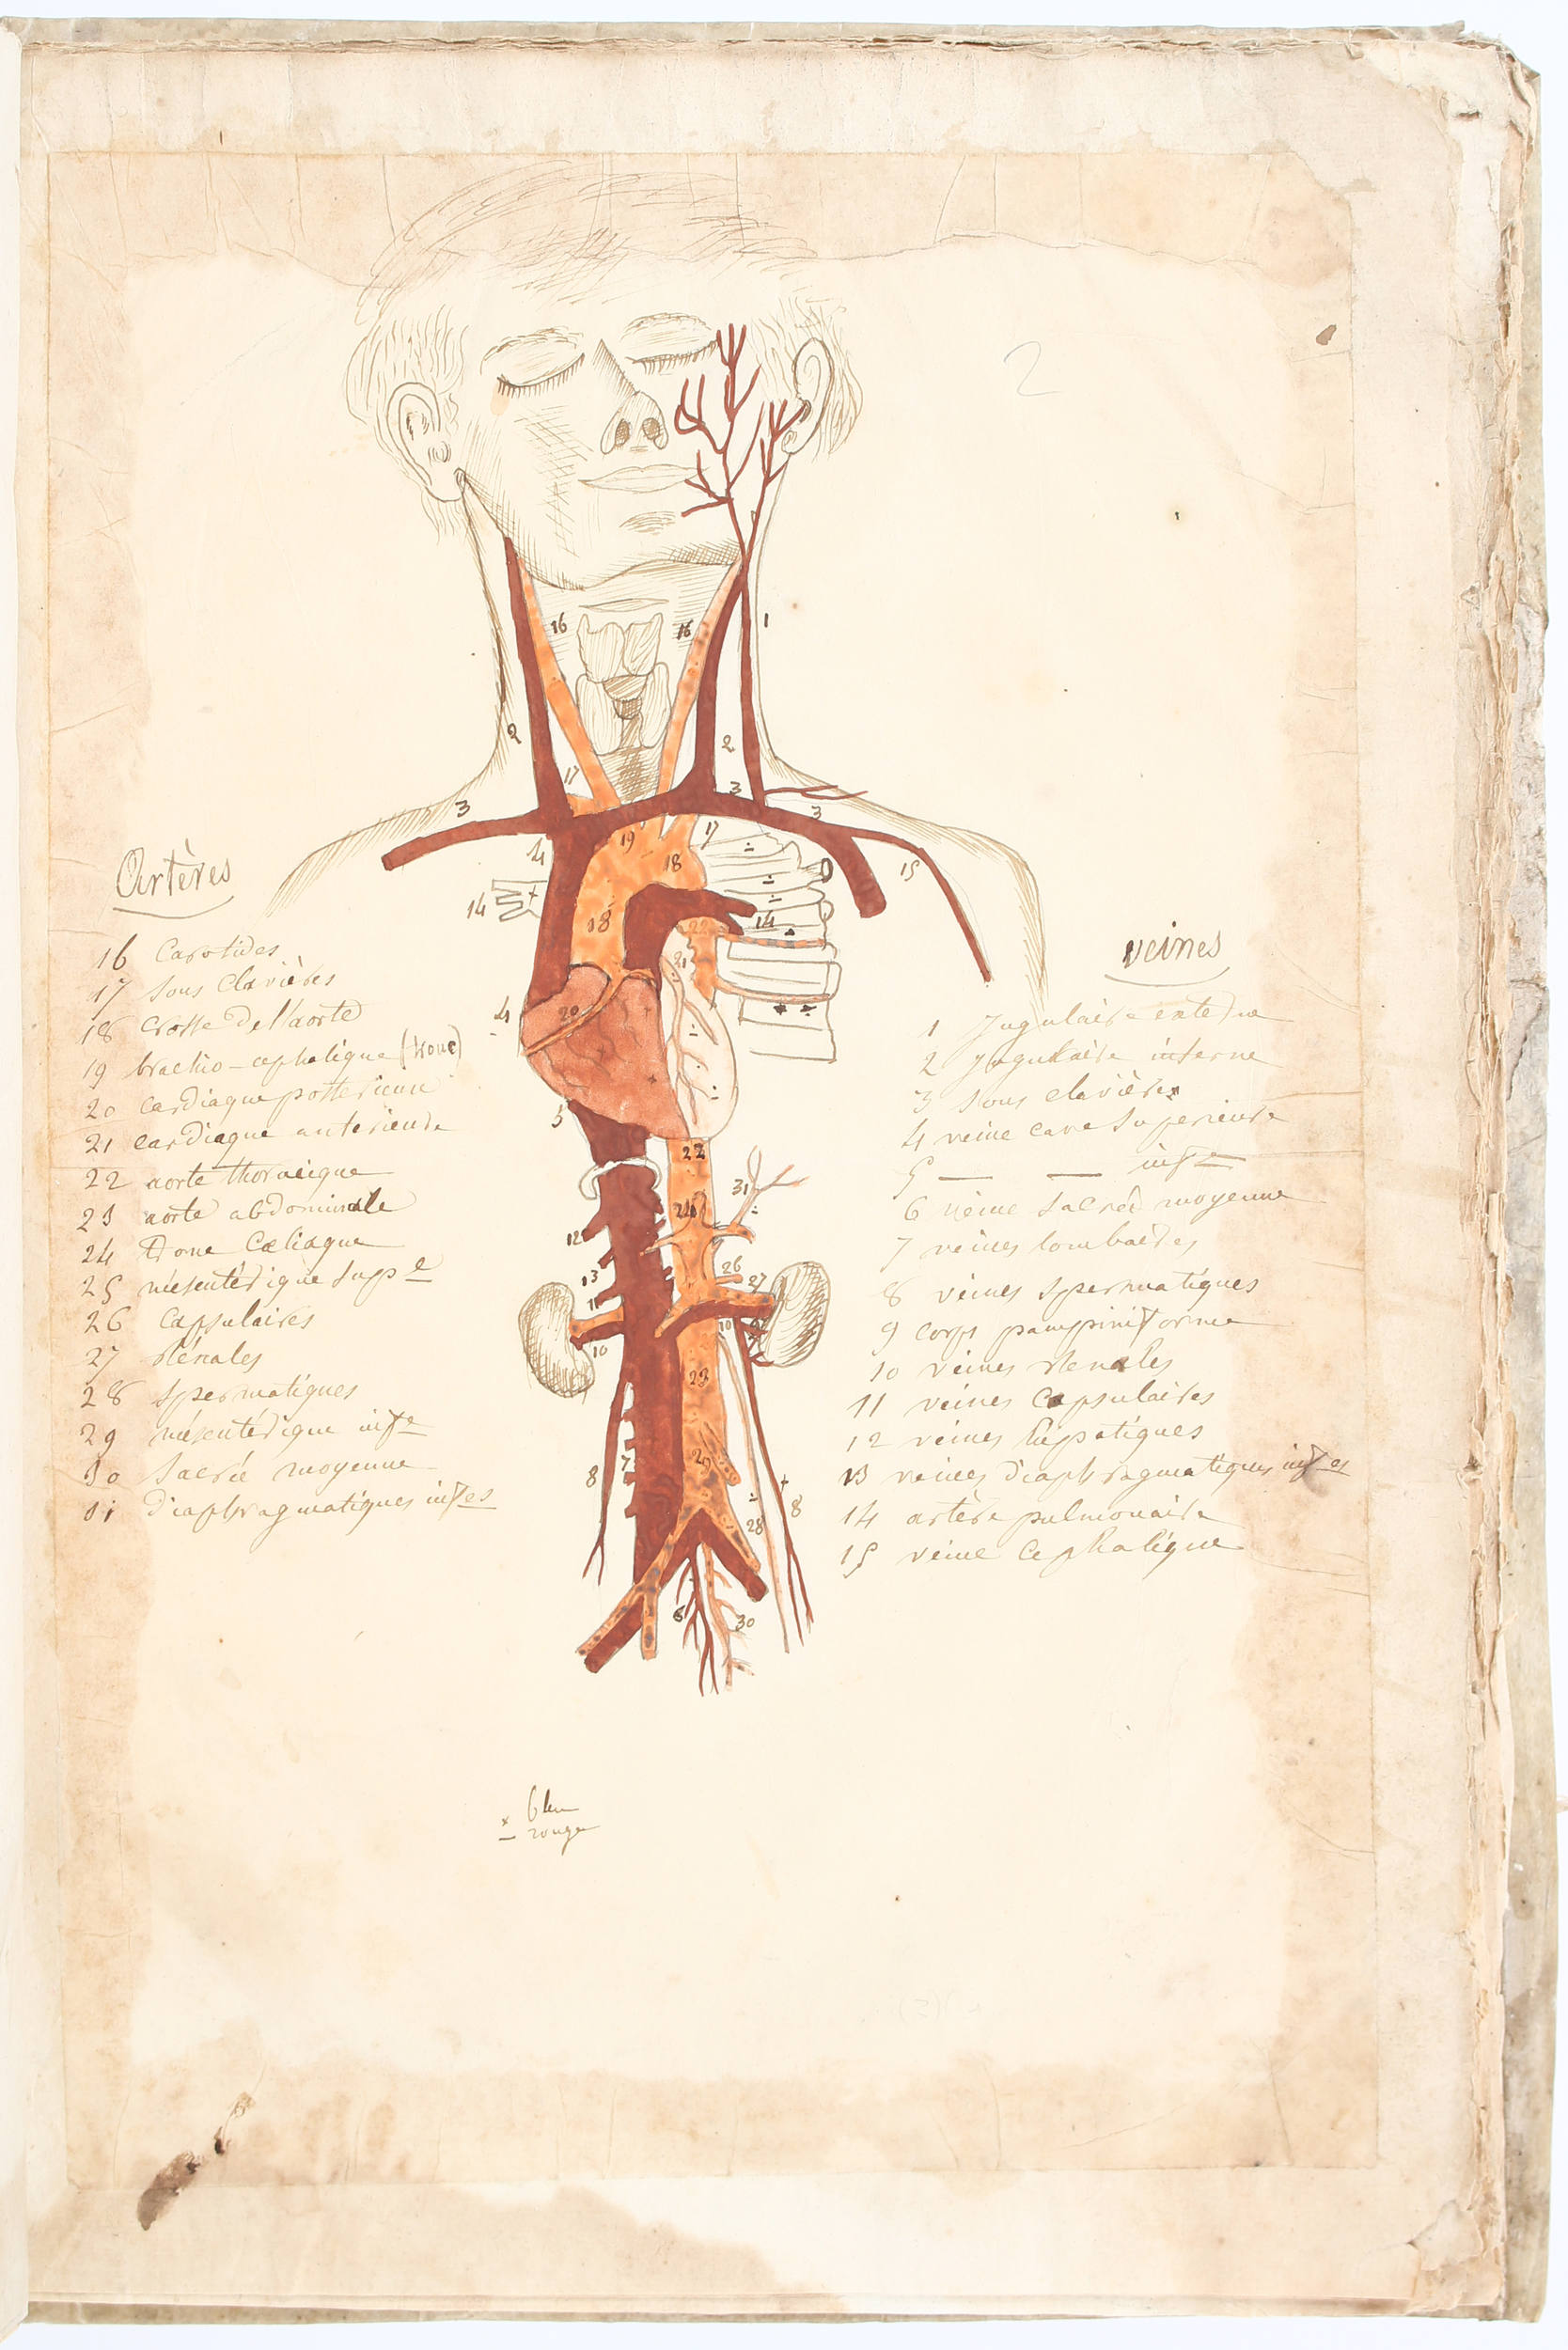 2
Artères
16 Carotides
17 Sous Clavières
18 Crosse De l'aorte
19 brachio-cephalique (tronc)
20 cardiaque posterieure
21 cardiaque anterieure
22 aorte thoracique
23 aorte abdominale
24 Tronc Cœliaque
25 mésentérique Supe
26 Capsulaires
27 Rénales
28 Spermatiques
29 mésentérique infre
30 Sacrée moyenne
31 Diaphragmatiques infres
veines
1 Jugulaire externe
2 Jugulaire interne
3 Sous clavières
4 veine cave Superieure
5 — — infre
6 veine Sacrée moyenne
7 veines lombaires
8 veines Spermatiques
9 corps pampiniforme
10 veines Renales
11 veines Capsulaires
12 veines hépatiques
13 veines Diaphragmatiques infres
14 artère pulmonaire
15 veine Cephalique
16 16
1
2 2
17
3 3 3
4 19 17
18 15
14 18 14
22
21
4 20
5
22
31
24
12
13 26 27
11
10 10
23
8 7 29 8
28
6 30
x bleu
– rouge